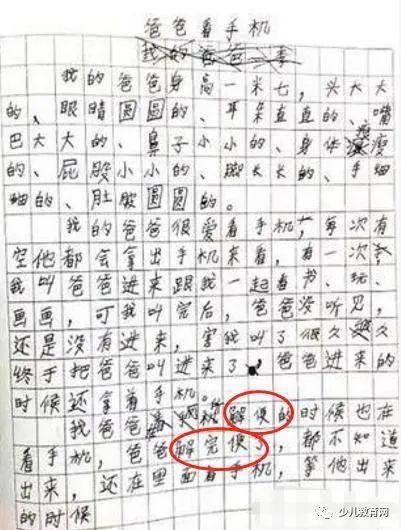 爸爸看手机
我的爸爸
我的爸爸身高一米七，头大大
的、眼睛圆圆的、耳朵直直的、嘴
巴大大的、鼻子小小的、身体瘦瘦
的、屁股小小的、脚长长的、手细
细的、肚股圆圆的。
我的爸爸很爱看手机，每次有
空他都会拿出手机来看，有一次，
我叫爸爸进来跟我一起看书、玩、
画画，可我叫完后，爸爸没听见，
还是没有进来，害我叫了很久
终于把爸爸叫进来了。爸爸进来的
时候还拿着手机。
我爸爸解便的时候也在
看手机，爸爸解完便了，都不知道
出来，还在里面看手机，等他出来
的时候
少儿教育网